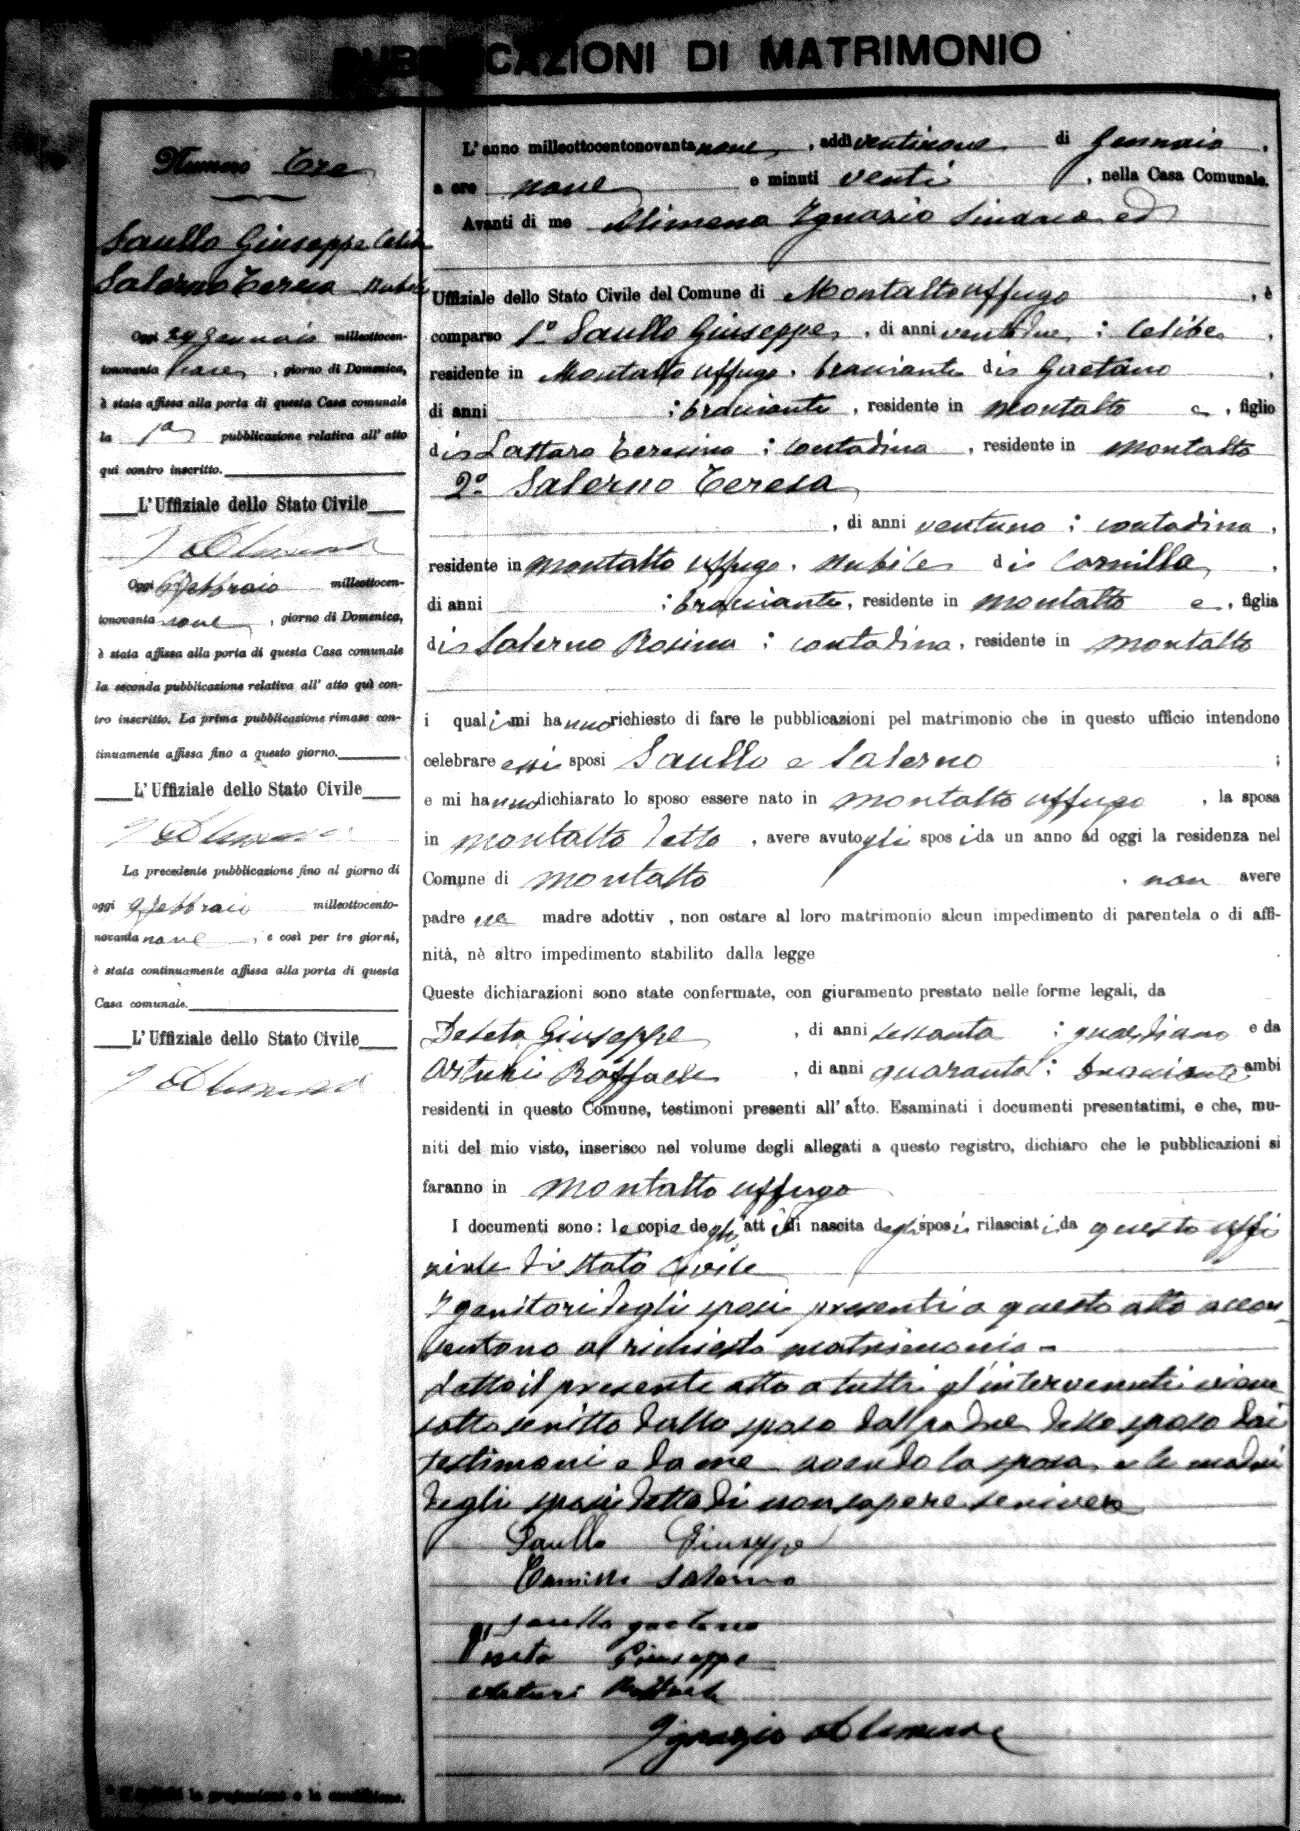 PUBBLICAZIONI DI MATRIMONIO
Numero Tre
Saullo Giuseppe Celibe
Salerno Teresa Nubile
Oggi 29 Gennaio milleottocen-
tonovanta nove, giorno di Domenica,
è stata affissa alla porta di questa Casa comunale
la 1a pubblicazione relativa all' atto
qui contro inscritto.
L'Uffiziale dello Stato Civile
Oggi Febbraio milleottocen-
tonovanta nove, giorno di Domenica,
è stata affissa alla porta di questa Casa comunale
la seconda pubblicazione relativa all' atto quì con-
tro inscritto. La prima pubblicazione rimase con-
tinuamente affissa fino a questo giorno.
L'Uffiziale dello Stato Civile
La precedente pubblicazione fino al giorno di
oggi 9 Febbraio milleottocento-
novanta nove, e così per tre giorni,
è stata continuamente affissa alla porta di questa
Casa comunale.
L'Uffiziale dello Stato Civile
L'anno milleottocentonovanta nove, addì ventinove di Gennaio,
a ore nove e minuti venti, nella Casa Comunale.
Avanti di me Alimena Ignazio Sindaco ed
Uffiziale dello Stato Civile del Comune di Montalto Uffugo, è
comparso 1º Saullo Giuseppe, di anni ventidue; Celibe,
residente in Montalto Uffugo, bracciante di Gaetano,
di anni ; bracciante, residente in Montalto e, figlio
di Lattaro Teresina; contadina, residente in Montalto
2º Salerno Teresa
, di anni ventuno; contadina,
residente in Montalto Uffugo, Nubile di Camillo,
di anni ; bracciante, residente in Montalto e, figlia
di Salerno Rosina; contadina, residente in Montalto
i quali mi hanno richiesto di fare le pubblicazioni pel matrimonio che in questo ufficio intendono
celebrare essi sposi Saullo e Salerno ;
e mi hanno dichiarato lo sposo essere nato in Montalto Uffugo, la sposa
in Montalto detto, avere avuto gli sposi da un anno ad oggi la residenza nel
Comune di Montalto, non avere
padre ne madre adottiv , non ostare al loro matrimonio alcun impedimento di parentela o di affi-
nità, nè altro impedimento stabilito dalla legge
Queste dichiarazioni sono state confermate, con giuramento prestato nelle forme legali, da
Deseta Giuseppe, di anni sessanta; guardiano e da
Arturi Raffaele, di anni quaranta; bracciante ambi
residenti in questo Comune, testimoni presenti all' atto. Esaminati i documenti presentatimi, e che, mu-
niti del mio visto, inserisco nel volume degli allegati a questo registro, dichiaro che le pubblicazioni si
faranno in Montalto Uffugo
I documenti sono: le copie degli atti di nascita degli sposi rilasciati da questo uffi
ziale di Stato Civile
I genitori degli sposi presenti a questo atto accon
sentono al richiesto matrimonio -
Letto il presente atto a tutti gl'intervenuti viene
sottoscritto dallo sposo dal padre dello sposo dai
testimoni e da me avendo la sposa e le madri
degli sposi detto di non sapere scrivere
Saullo Giuseppe
Camillo Salerno
Saullo gaetano
Deseta Giuseppe
Arturi Raffaele
Ignazio Alimena